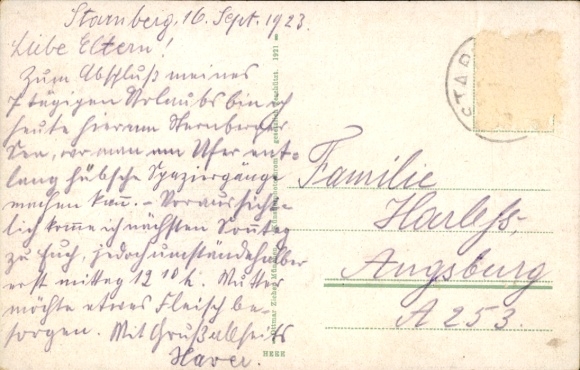 Starnberg, 16. Sept. 1923.
Liebe Eltern!
Zum Abschluß meines
7 tägigen Urlaubs bin ich
heute hier am Starnberger
See, wo man am Ufer ent-
lang hübsche Spaziergänge
machen kann. – Voraussicht-
lich komme ich nächsten Sonntag
zu Euch, jedoch umständehalber
erst mittag 12 10 h. Mutter
möchte etwas Fleisch be-
sorgen. Mit Gruß allseits
Xaver.
Familie
Harless,
Augsburg
A 253.
STAR
1921
HERE